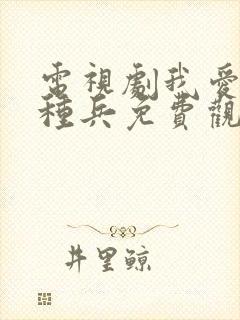 電視劇我愛
種兵免費觀
井里鯨